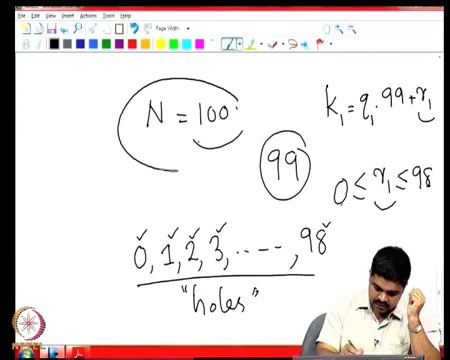 File Edit View Insert Actions Tools Help
Page Width
N = 100
k₁ = q₁·99 + r₁
99
0 ≤ r₁ ≤ 98
0, 1, 2, 3, ----, 98
"holes"